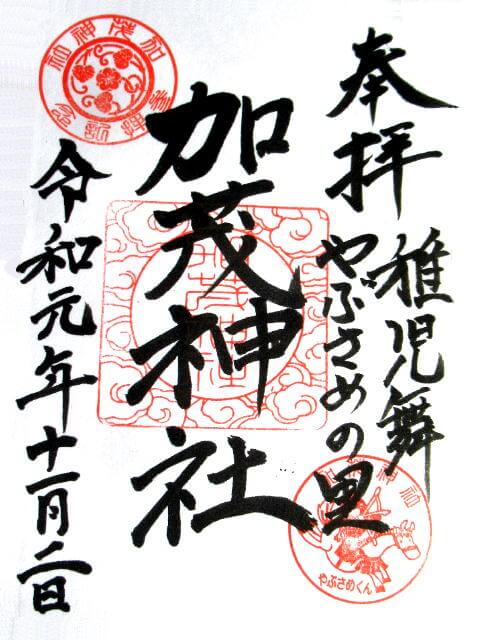 奉拝
稚児舞
やぶさめの里
加茂神社
令和元年十一月二日
加茂神社
参拝記念
加茂神社
やぶさめくん